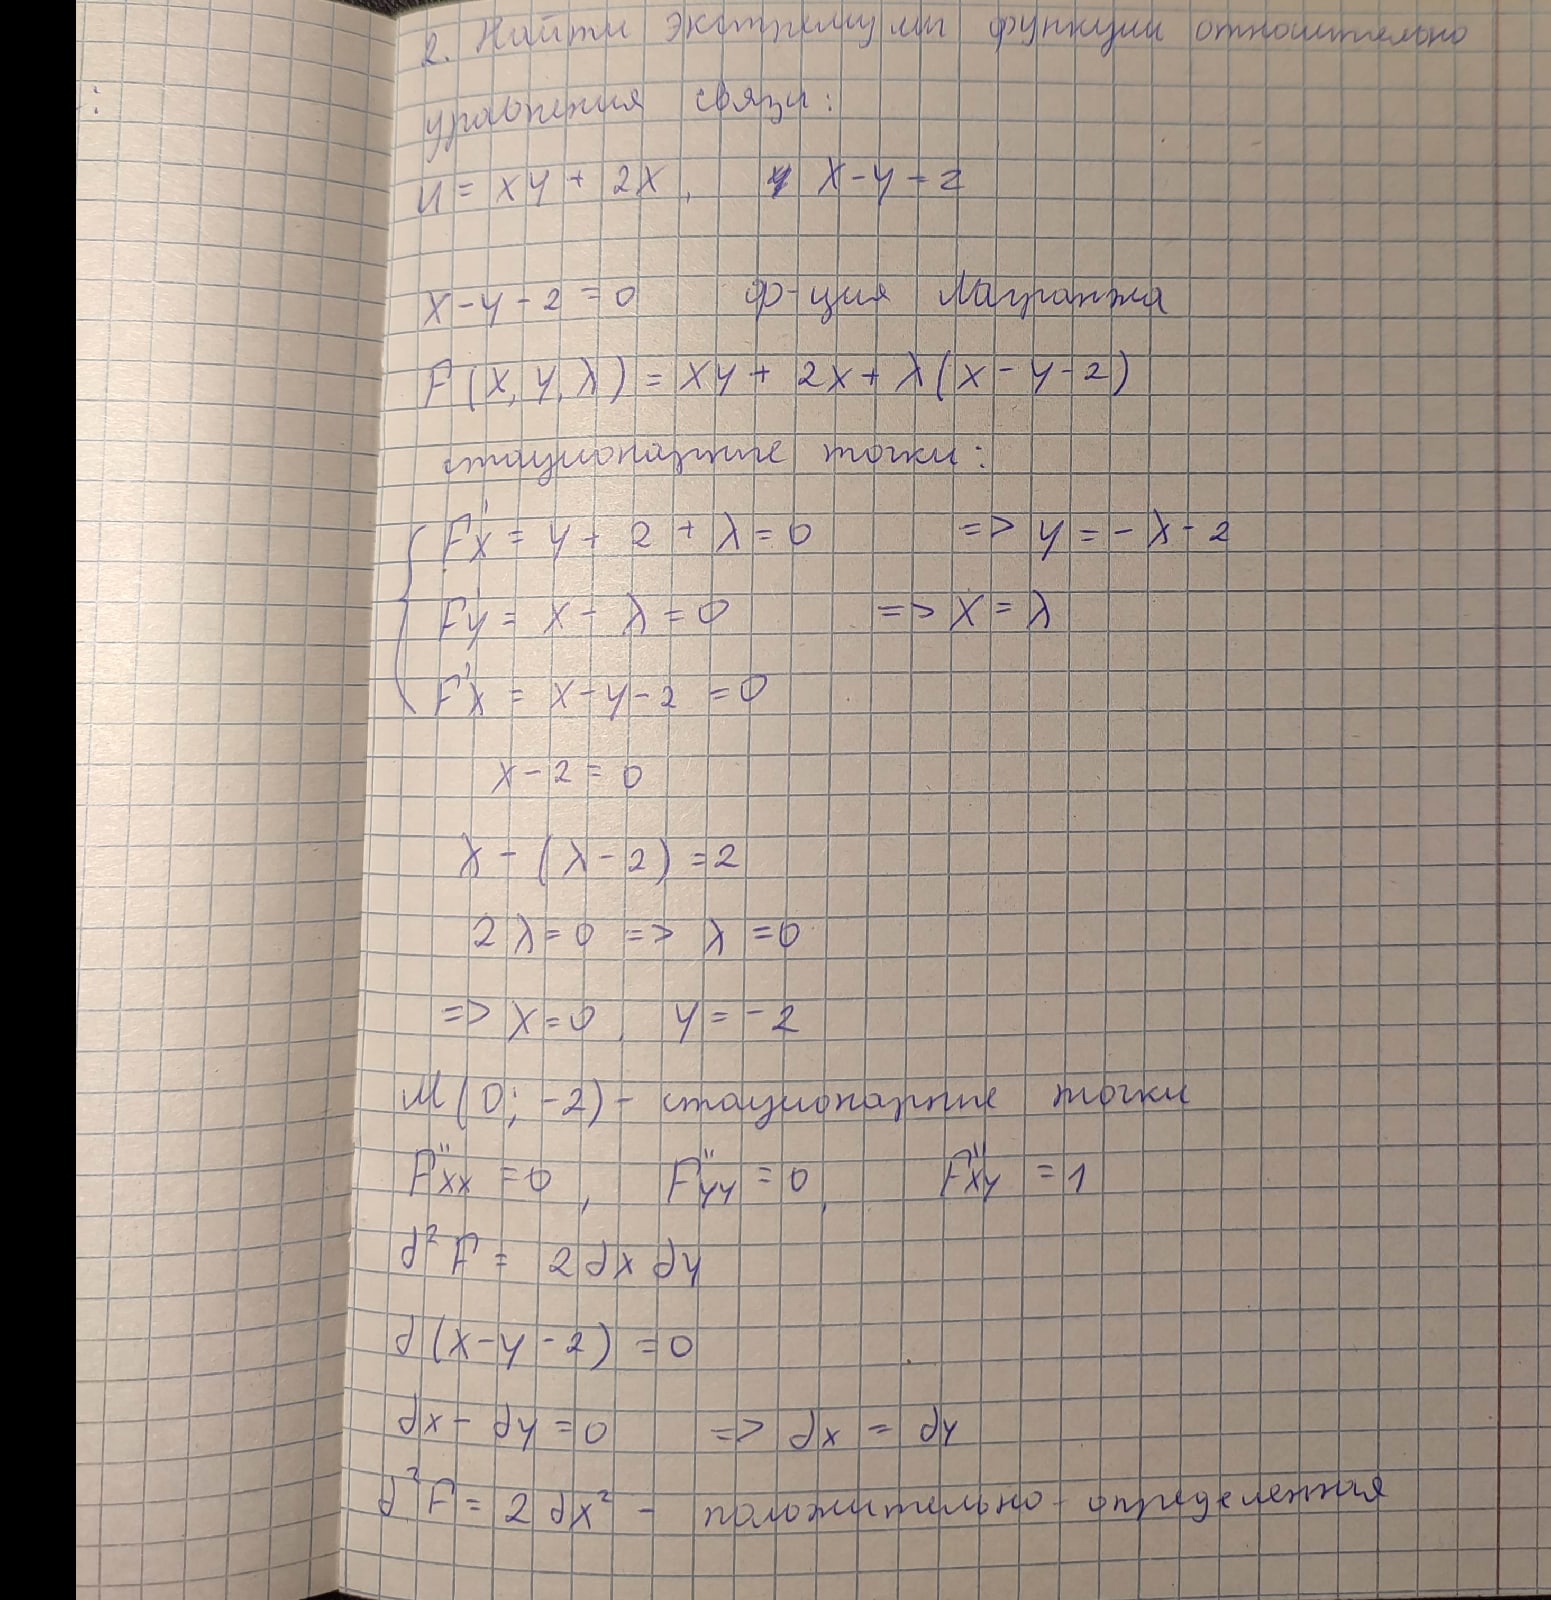 :
2. Найти экстремумы функции относительно
уравнения связи:
u = xy + 2x, x - y = 2
x - y - 2 = 0 ф-ция Лагранжа
F(x, y, λ) = xy + 2x + λ(x - y - 2)
стационарные точки:
F'x = y + 2 + λ = 0 => y = -λ - 2
F'y = x - λ = 0 => x = λ
F'λ = x - y - 2 = 0
x - 2 = 0
λ - (λ - 2) = 2
2λ = 0 => λ = 0
=> x = 0, y = -2
M(0; -2) - стационарные точки
F''xx = 0, F''yy = 0, F''xy = 1
d²F = 2dxdy
d(x - y - 2) = 0
dx - dy = 0 => dx = dy
d²F = 2dx² - положительно-определенная